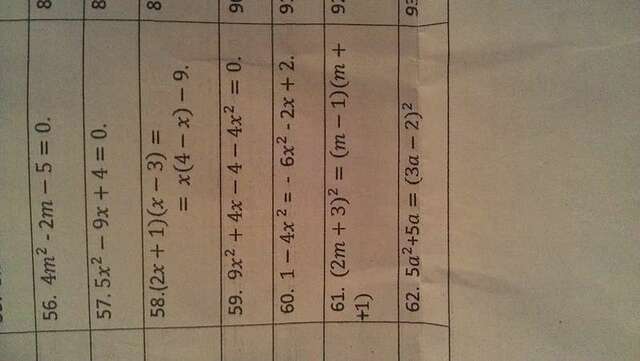 56. 4m² - 2m − 5 = 0.
57. 5x² − 9x + 4 = 0.
58.(2x + 1)(x − 3) =
= x(4 − x) − 9.
59. 9x² + 4x − 4 − 4x² = 0.
60. 1 − 4x² = - 6x² - 2x + 2.
61. (2m + 3)² = (m − 1)(m +
+1)
62. 5a²+5a = (3a − 2)²